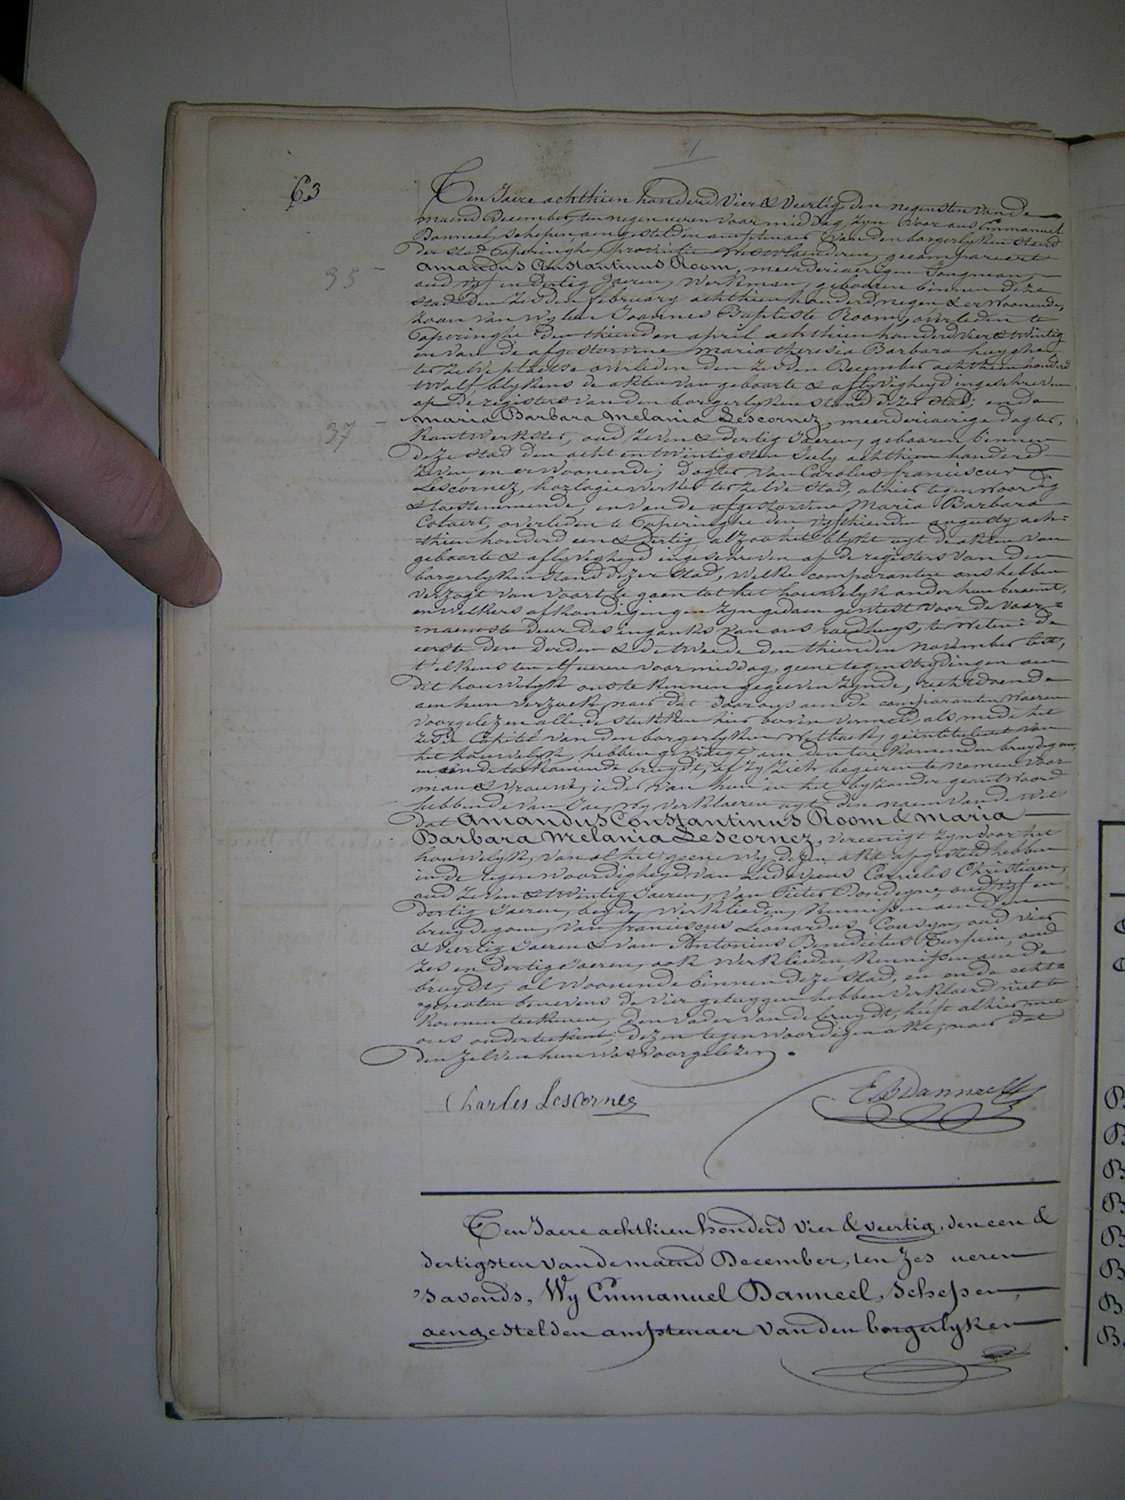 63
Ten Jaere achthien honderd vier & veertig den negensten van de
maend December, ten negen ueren voor middag, zyn voor ons Emmanuel
Danneel, schepen aengestelden amptenaer van den borgerlyken stand
der stad Poperinghe provintie Westvlaenderen, gecompareert
35 Amandus Constantinus Room, meerderjaerigen Jongman,
oud vyf en dertig Jaeren, werkman, geboren binnen deze
stad den zesden february achthien honderd negen & er woonende,
zoon van wylen Joannes Baptiste Room, overleden te
Poperinghe den thienden april achthien honderd vier & twintig
en van de afgestorvene Maria Theresia Barbara huyghe,
ter zelve plaetse overleden den December achthien honderd
twalf blykens de akten van geboorte & aflyvigheyd ingeschreven
op de registers van den borgerlyken stand dezer stad; ende
37 Maria Barbara Melania Lescornez, meerderjaerige dogter,
kantwerkster, oud zeven & dertig Jaeren, geboren binnen
deze stad den acht en twintigsten July achthien honderd
zeven en er woonende; dogter van Carolus franciscus
Lescornez, horlogiewerker ter zelve stad, alhier tegenwoordig
& toestemmende, en van de afgestorvene Maria Barbara
Colaert, overleden te Poperinghe den vyfthienden augusty ach-
thien honderd een & dertig alzoo het blykt uyt de akten van
geboorte & aflyvigheyd ingeschreven op de registers van den
borgerlyken stand dezer stad, welke comparanten ons hebben
verzogt van voorts te gaen tot het houwelyk onder hun beraemt,
en welkers afkondigingen zyn gedaen geweest voor de voor-
naemste deur des ingangs van ons raedhuys, te weten: de
eerste den derden & de tweede den thienden november
t'elkens ten elf ueren voormiddag, geene tegenstrydingen aen
dit houwelyk ons te kennen gegeven zynde, rechtdoende
aen hun verzoek, naer dat door ons aen de comparanten waeren
voorgelezen alle de stukken hier boven vermeld, als mede het
zesde Capitel van den borgerlyken Wetboek, geintituleert van
het houwelyk, hebben gevraegt aen den toekomenden bruydegom
en aen de toekomende bruydt, of zy zich begeiren te nemen voor
man & vrouwe, ieder van hun in het byzonder geantwoord
hebbende van Jae, wy verklaeren uyt den naem van de wet
dat Amandus Constantinus Room & Maria
Barbara Melania Lescornez, vereenigt zyn door het
houwelyk, van al het geene wy dezen akte opgesteld hebben
in de tegenwoordigheyd van Ludovicus Cornelis Christiaen,
oud zeven & twintig Jaeren, van Pieter oud vyf en
dertig Jaeren, beyde werklieden, kennissen aen den
bruydegom, van franciscus Leonardus Cousyn, oud vier
& veertig Jaeren & van Antonius Benedictus Turpin, oud
zes en dertig Jaeren, ook werklieden kennissen aen de
bruydt, al woonende binnen deze stad, en onde echte
genooten benevens de vier getuygen hebben verklaerd niet te
konnen teekenen, den vader van de bruydt, heeft alhier met
ons onderteekent, dezen tegenwoordigen akte, naer dat
den zelven hun was voorgelezen.
Charles Lescornez
E Danneel
Ten Jaere achthien honderd vier & veertig, den een &
dertigsten van de maend December, ten zes ueren
's avonds, Wy Emmanuel Danneel, schepen,
aengestelden amptenaer van den borgerlyken